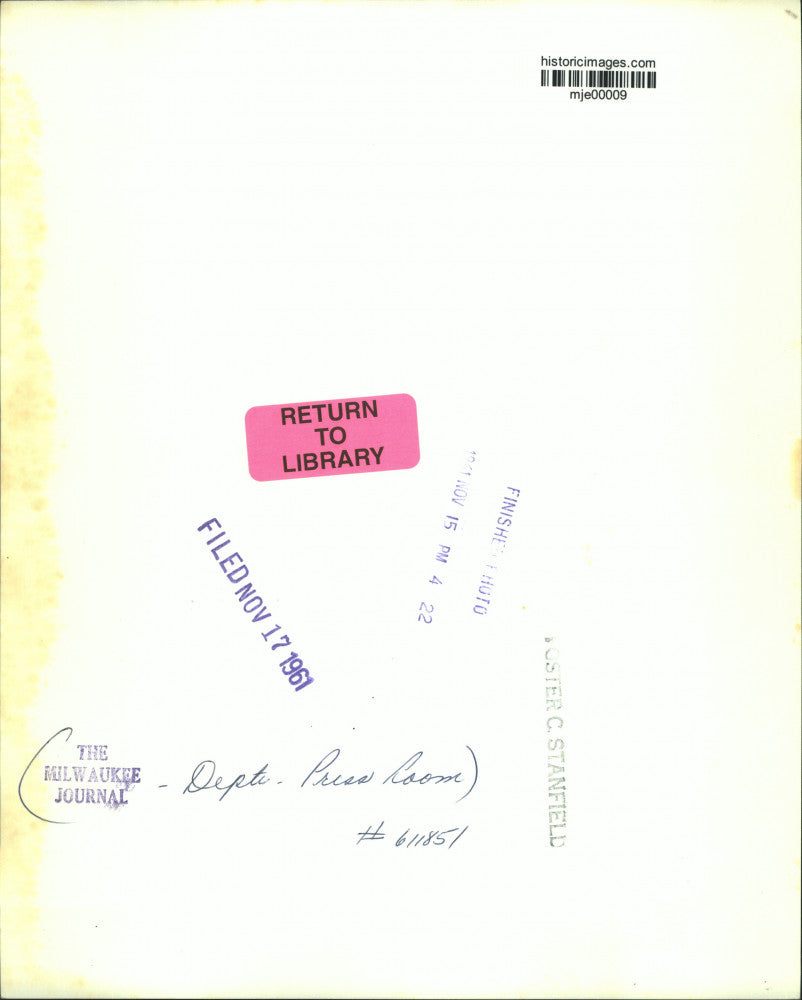 historicimages.com
mje00009
RETURN
TO
LIBRARY
FILED NOV 17 1961
NOV 15 PM 4 22
FOSTER C. STANFIELD
(THE
MILWAUKEE
JOURNAL - Depts - Press Room)
# 611851